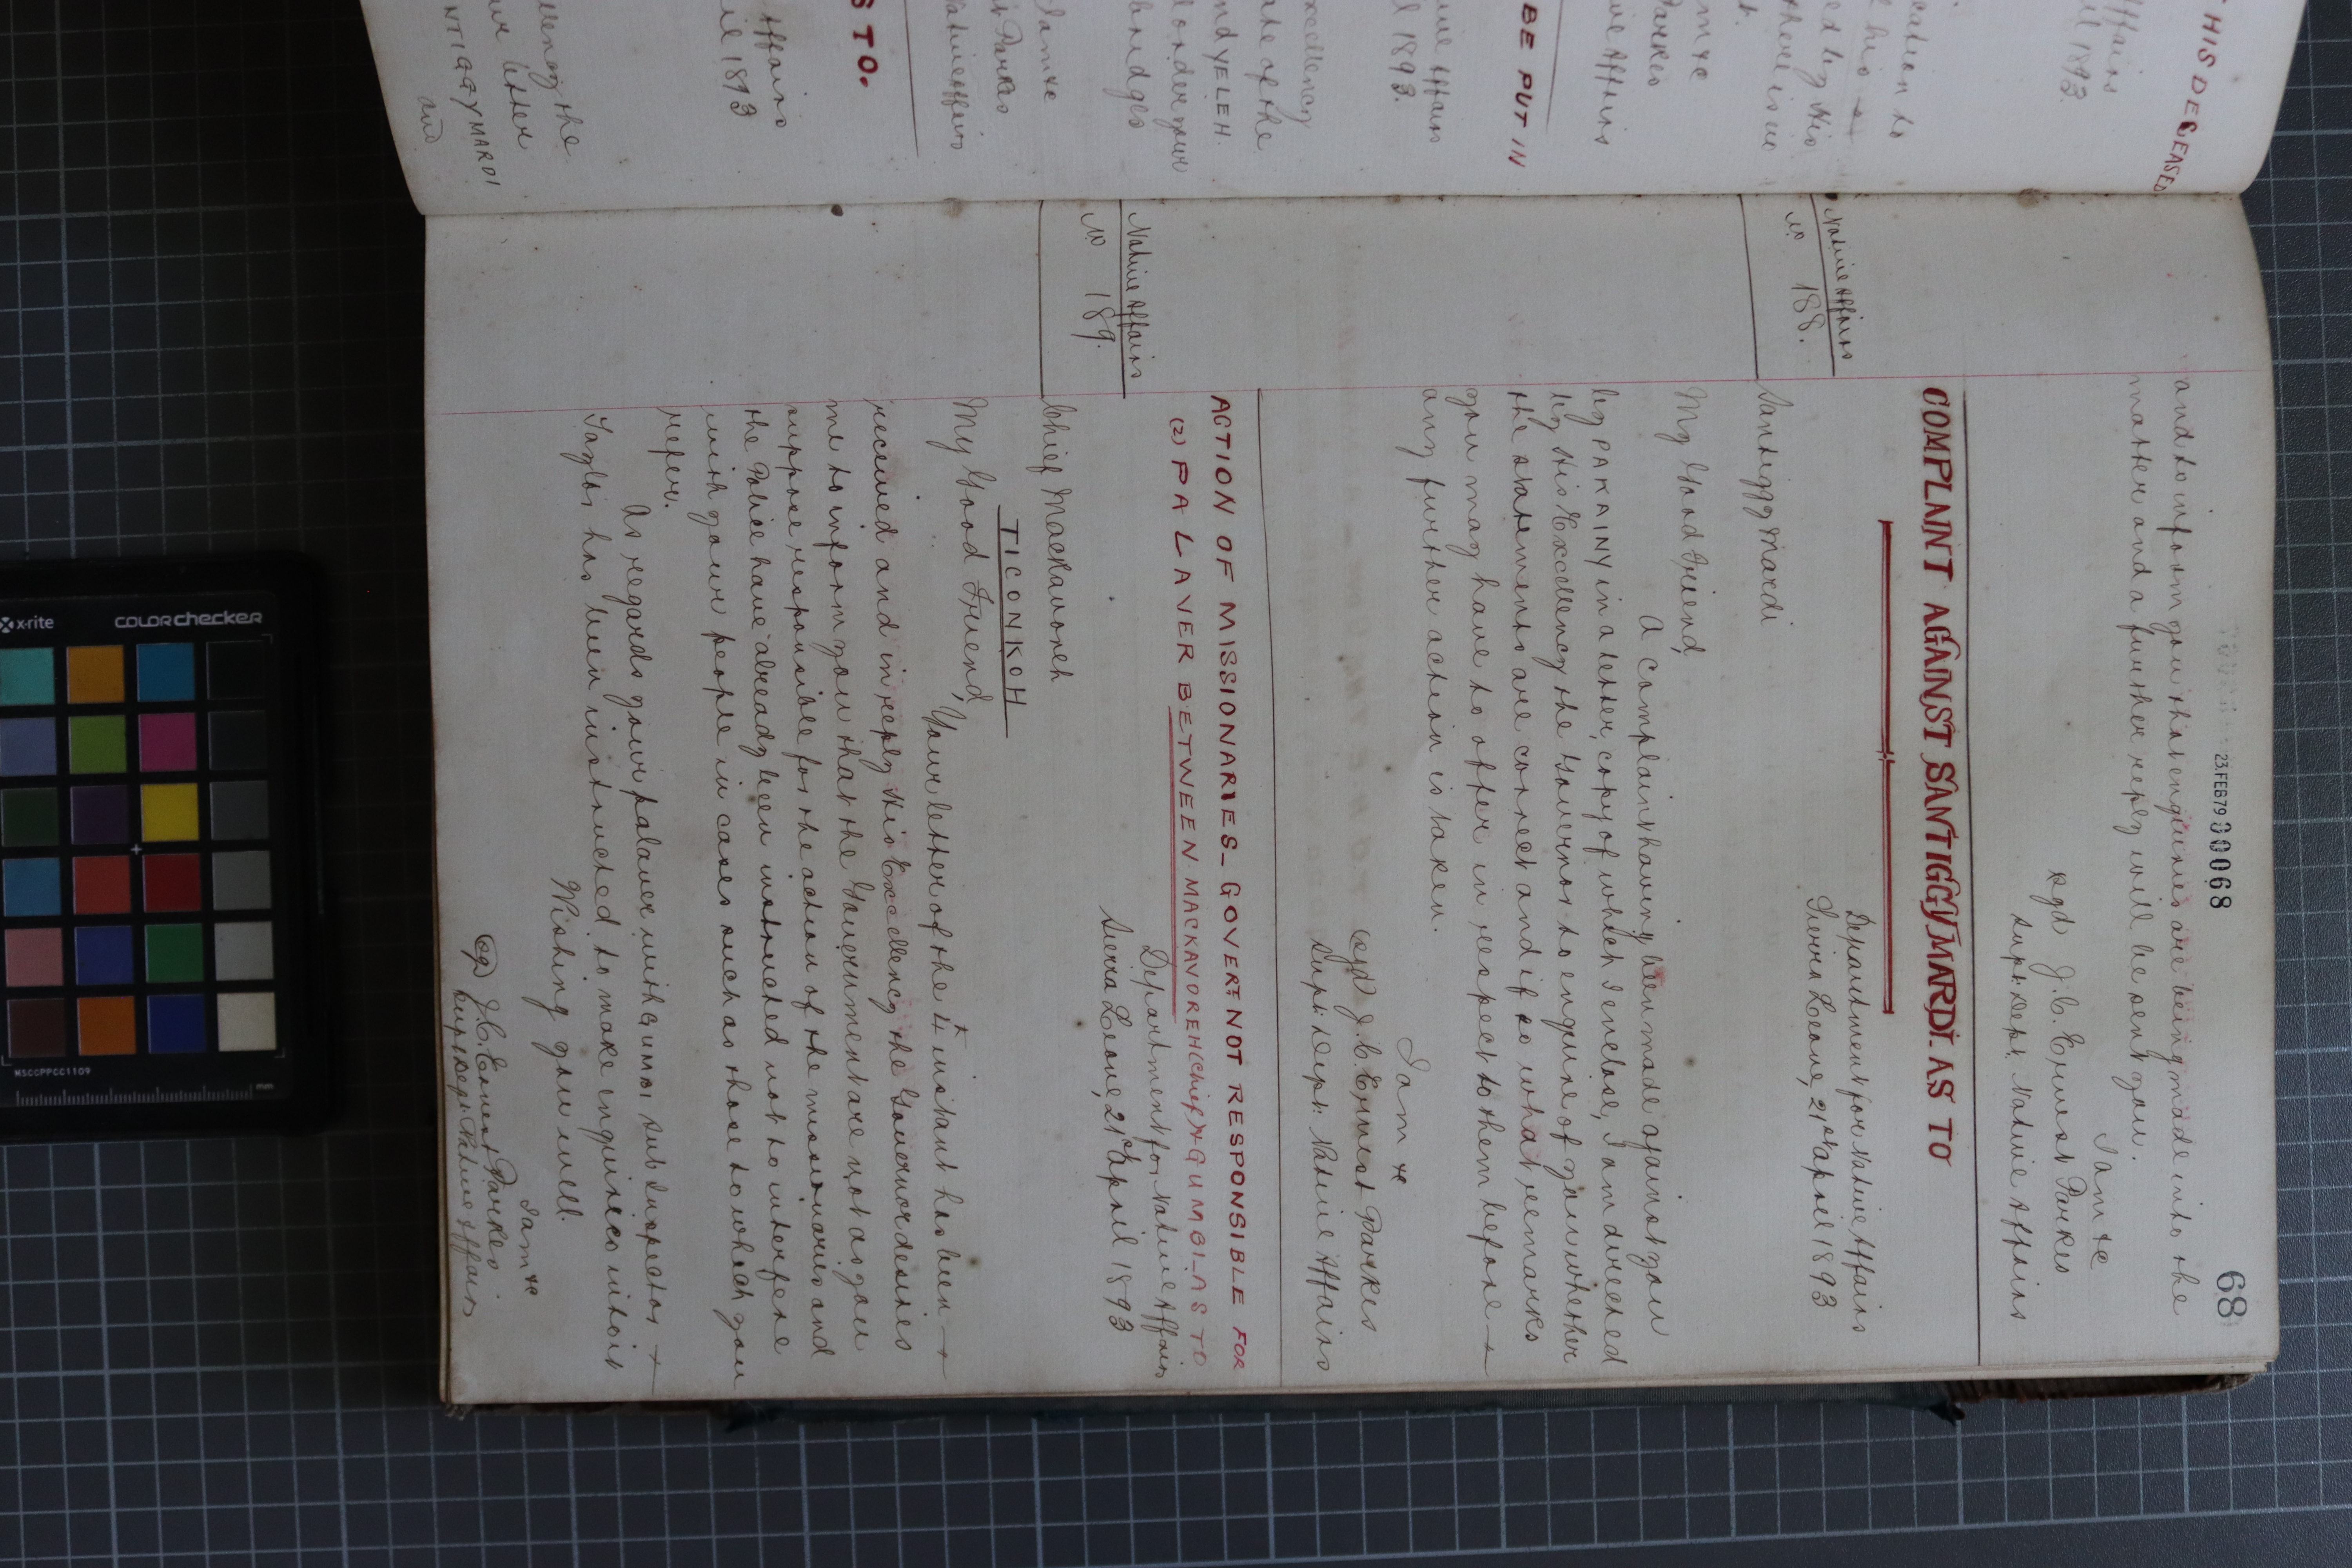 68
23.FEB79 00068
and to inform you that enquiries are being made into the
matter and a further reply will be sent you.
I am &c
sgd J. C. Ernest Parkes
Supt: Dept: Native Affairs
COMPLAINT AGAINST SANTIGGY MARDI. AS TO
Native Affairs
No 188.
Department for Native Affairs
Sierra Leone, 21st April 1893
Santiggy Mardi
My Good Friend,
A complaint having been made against you
by PA KAINY in a letter, copy of which I enclose, I am directed
by His Excellency the Governor to enquire of you whether
the statements are correct and if so what remarks
you may have to offer in respect to them before
any further action is taken.
I am &c
sgd J. C. Ernest Parkes
Supt: Dept: Native Affairs
ACTION OF MISSIONARIES_ GOVERT NOT RESPONSIBLE FOR
(2) PALAVER BETWEEN MACKAVOREH (Chief) & GUMBLAS TO
Native Affairs
No 189.
Department for Native Affairs
Sierra Leone, 21st April 1893
Chief Mackavoreh
TICONKOH
My Good Friend,
Your letter of the 4th instant has been
received and in reply His Excellency the Governor desires
me to inform you that the Government are not as you
suppose responsible for the action of the missionaries and
the Police have already been instructed not to interfere
with your people in cases such as those to which you
refer.
As regards your palaver with Sub Inspector
Taylor has been instructed to make enquiries into it
Wishing you well.
I am &c
J. C. Ernest Parkes
Supt Dept: Native Affairs
THIS DECEASED
Affairs
1893.
cation to
his
ed by His
there is no
t.
m &c
Parkes
ive Affairs
BE PUT IN
tive Affairs
l 1893.
xcellency
ate of the
nd YELEH.
am &c
Parkes
Native Affairs
S TO.
Affairs
il 1893
llency the
letter
NTIGGY MARDI
and
x-rite
colorchecker
MSCCPPCC1109
mm